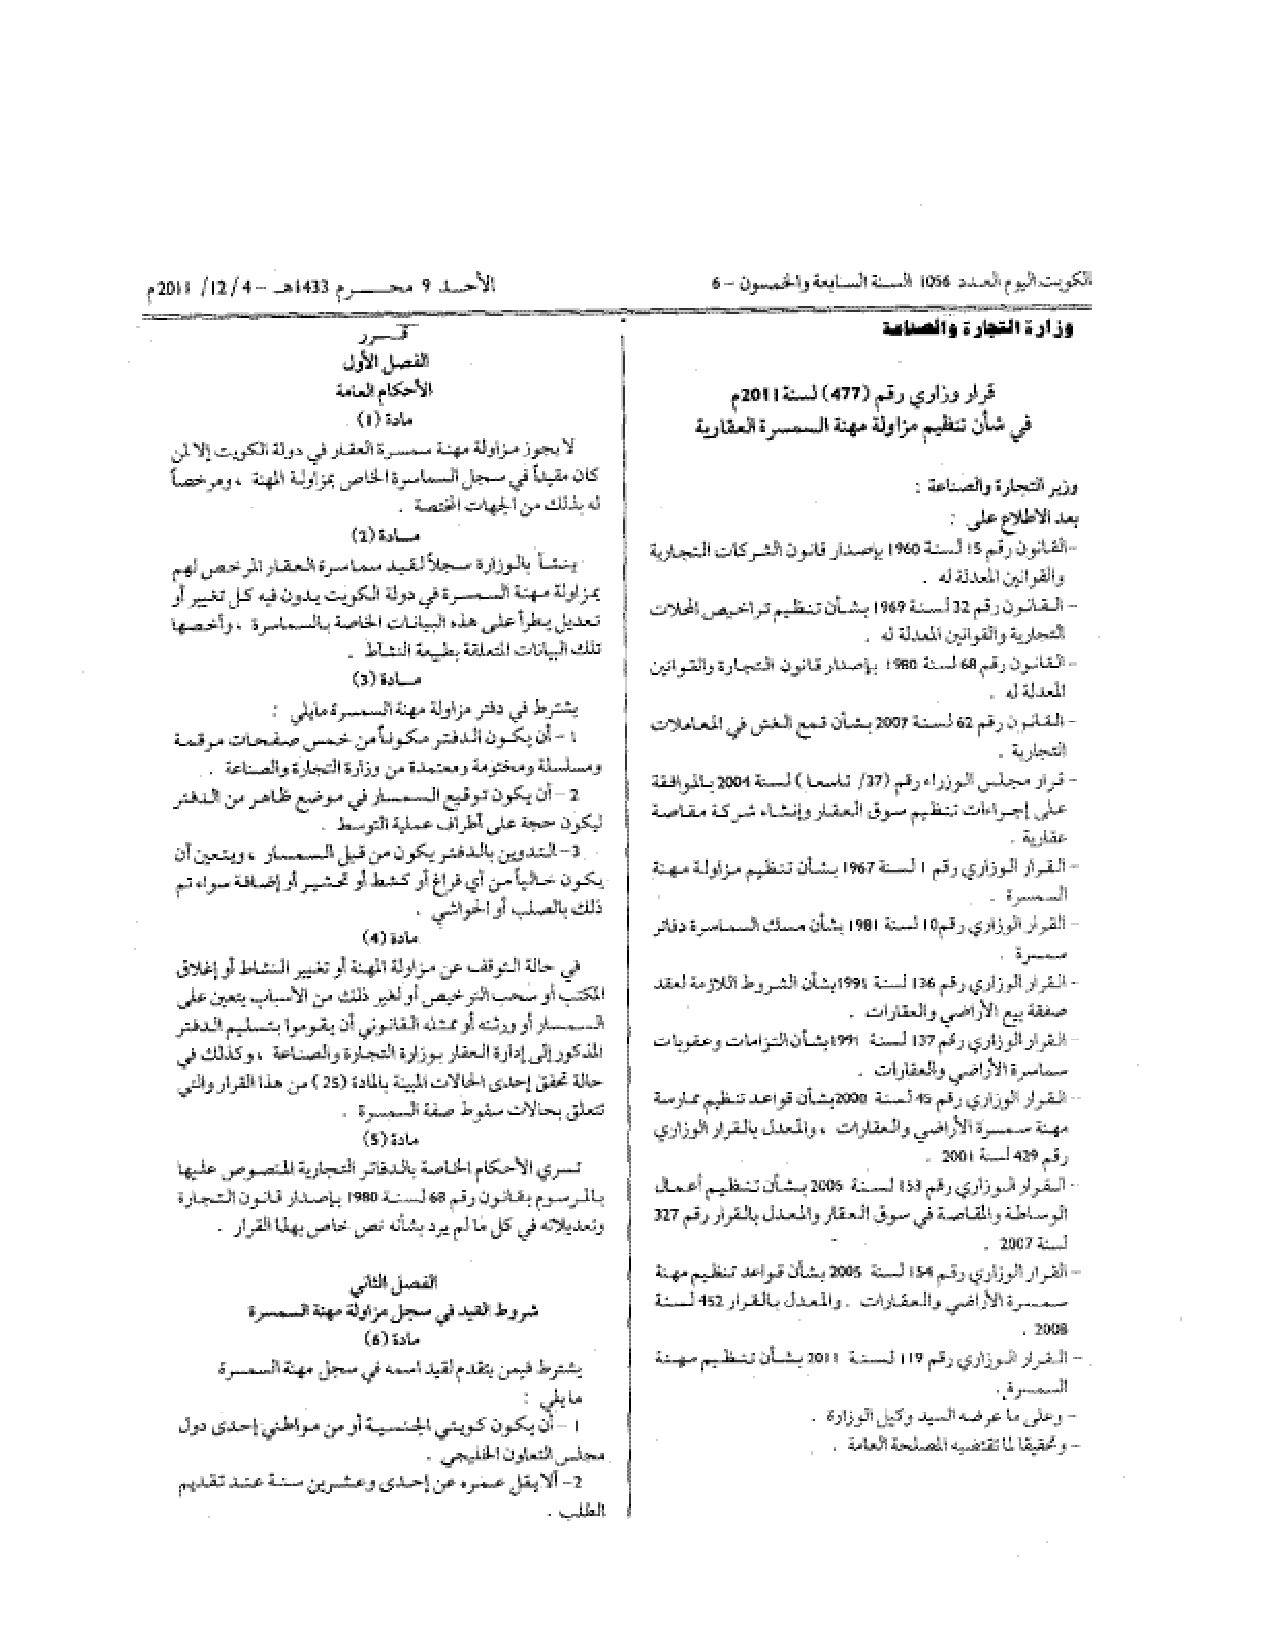 الكويت اليوم العدد 1056 السنة السابعة والخمسون – 6
الأحد 9 محرم 1433هـ – 4 /12 /2011م
وزارة التجارة والصناعة
قرار وزاري رقم (477) لسنة 2011م
في شأن تنظيم مزاولة مهنة السمسرة العقارية
وزير التجارة والصناعة :
بعد الاطلاع على :
–القانون رقم 15 لسنة 1960 بإصدار قانون الشركات التجارية
والقوانين المعدلة له .
– القانون رقم 32 لسنة 1969 بشأن تنظيم تراخيص المحلات
التجارية والقوانين المعدلة له .
– القانون رقم 68 لسنة 1980 بإصدار قانون التجارة والقوانين
المعدلة له .
– القانون رقم 62 لسنة 2007 بشأن قمع الغش في المعاملات
التجارية .
– قرار مجلس الوزراء رقم (37/ تاسعا) لسنة 2004 بالموافقة
على إجراءات تنظيم سوق العقار وإنشاء شركة مقاصة
عقارية .
– القرار الوزاري رقم 1 لسنة 1967 بشأن تنظيم مزاولة مهنة
السمسرة .
– القرار الوزاري رقم10 لسنة 1981 بشأن مسك السماسرة دفاتر
سمسرة .
– القرار الوزاري رقم 136 لسنة 1991بشأن الشروط اللازمة لعقد
صفقة بيع الأراضي والعقارات .
– القرار الوزاري رقم 137 لسنة 1991بشأن التزامات وعقوبات
سماسرة الأراضي والعقارات .
– القرار الوزاري رقم 45 لسنة 2000بشأن قواعد تنظيم ممارسة
مهنة سمسرة الأراضي والعقارات ، والمعدل بالقرار الوزاري
رقم 429 لسنة 2001 .
– القرار الوزاري رقم 153 لسنة 2005 بشأن تنظيم أعمال
الوساطة والمقاصة في سوق العقار والمعدل بالقرار رقم 327
لسنة 2007 .
– القرار الوزاري رقم 154 لسنة 2005 بشأن قواعد تنظيم مهنة
سمسرة الأراضي والعقارات . والمعدل بالقرار 452 لسنة
2008 .
– القرار الوزاري رقم 119 لسنة 2011 بشأن تنظيم مهنة
السمسرة .
– وعلى ما عرضه السيد وكيل الوزارة .
– وتحقيقا لما تقتضيه المصلحة العامة .
قـــرر
الفصل الأول
الأحكام العامة
مادة (1)
لا يجوز مزاولة مهنة سمسرة العقار في دولة الكويت إلا لمن
كان مقيداً في سجل السماسرة الخاص بمزاولة المهنة ، ومرخصاً
له بذلك من الجهات المختصة .
مــادة (2)
ينشأ بالوزارة سجلاً لقيد سماسرة العقار المرخص لهم
بمزاولة مهنة السمسرة في دولة الكويت يدون فيه كل تغيير أو
تعديل يطرأ على هذه البيانات الخاصة بالسماسرة ، وأخصها
تلك البيانات المتعلقة بطبيعة النشاط .
مــادة (3)
يشترط في دفتر مزاولة مهنة السمسرة مايلي :
1 – أن يكون الدفتر مكوناً من خمس صفحات مرقمة
ومسلسلة ومختومة ومعتمدة من وزارة التجارة والصناعة .
2 – أن يكون توقيع السمسار في موضع ظاهر من الدفتر
ليكون حجة على أطراف عملية التوسط .
3– التدوين بالدفتر يكون من قبل السمسار ، ويتعين أن
يكون خالياً من أي فراغ أو كشط أو تحشير أو إضافة سواء تم
ذلك بالصلب أو الحواشي .
مادة (4)
في حالة التوقف عن مزاولة المهنة أو تغيير النشاط أو إغلاق
المكتب أو سحب الترخيص أو لغير ذلك من الأسباب يتعين على
السمسار أو ورثته أو ممثله القانوني أن يقوموا بتسليم الدفتر
المذكور إلى إدارة العقار بوزارة التجارة والصناعة ، وكذلك في
حالة تحقق إحدى الحالات المبينة بالمادة (25) من هذا القرار والتي
تتعلق بحالات سقوط صفة السمسرة .
مادة (5)
تسري الأحكام الخاصة بالدفاتر التجارية المنصوص عليها
بالمرسوم بقانون رقم 68 لسنة 1980 بإصدار قانون التجارة
وتعديلاته في كل ما لم يرد بشأنه نص خاص بهذا القرار .
الفصل الثاني
شروط القيد في سجل مزاولة مهنة السمسرة
مادة (6)
يشترط فيمن يتقدم لقيد اسمه في سجل مهنة السمسرة
مايلي :
1 – أن يكون كويتي الجنسية أو من مواطني إحدى دول
مجلس التعاون الخليجي .
2– ألا يقل عمره عن إحدى وعشرين سنة عند تقديم
الطلب .